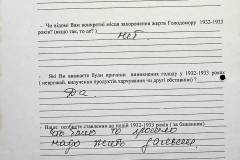 - Чи відомі Вам конкретні місця захоронення жертв Голодомору 1932-1933
років? (якщо так, то де? )
нет
- Які Ви вважаєте були причини виникнення голоду у 1932-1933 роках
( неврожай, вилучення продуктів харчування чи другі обставини) ?
Да.
- Ваше особисте ставлення до подій 1932-1933 років ( за бажанням)
что было то прошло
надо жить дальше.